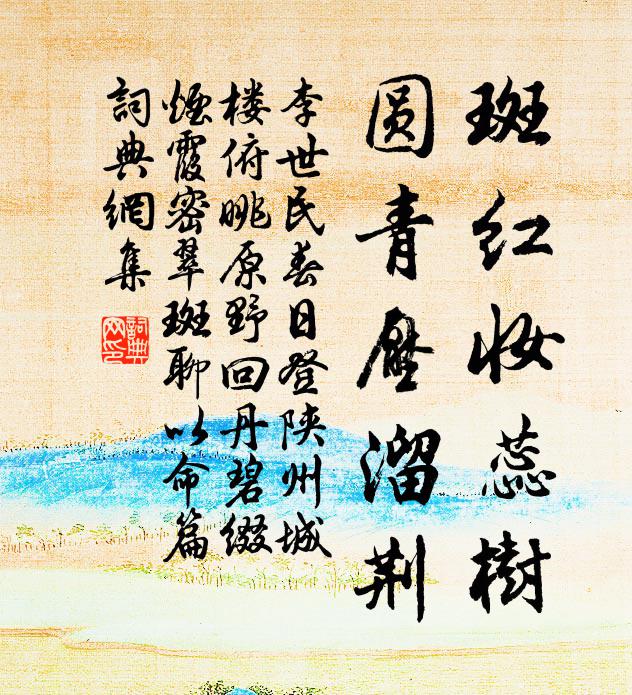 斑红妆蕊樹
圆青压溜荆
李世民春日登陕州城
楼俯眺原野回丹碧缀
煙霞密翠斑聊以命篇
詞典網集
詞典
网印